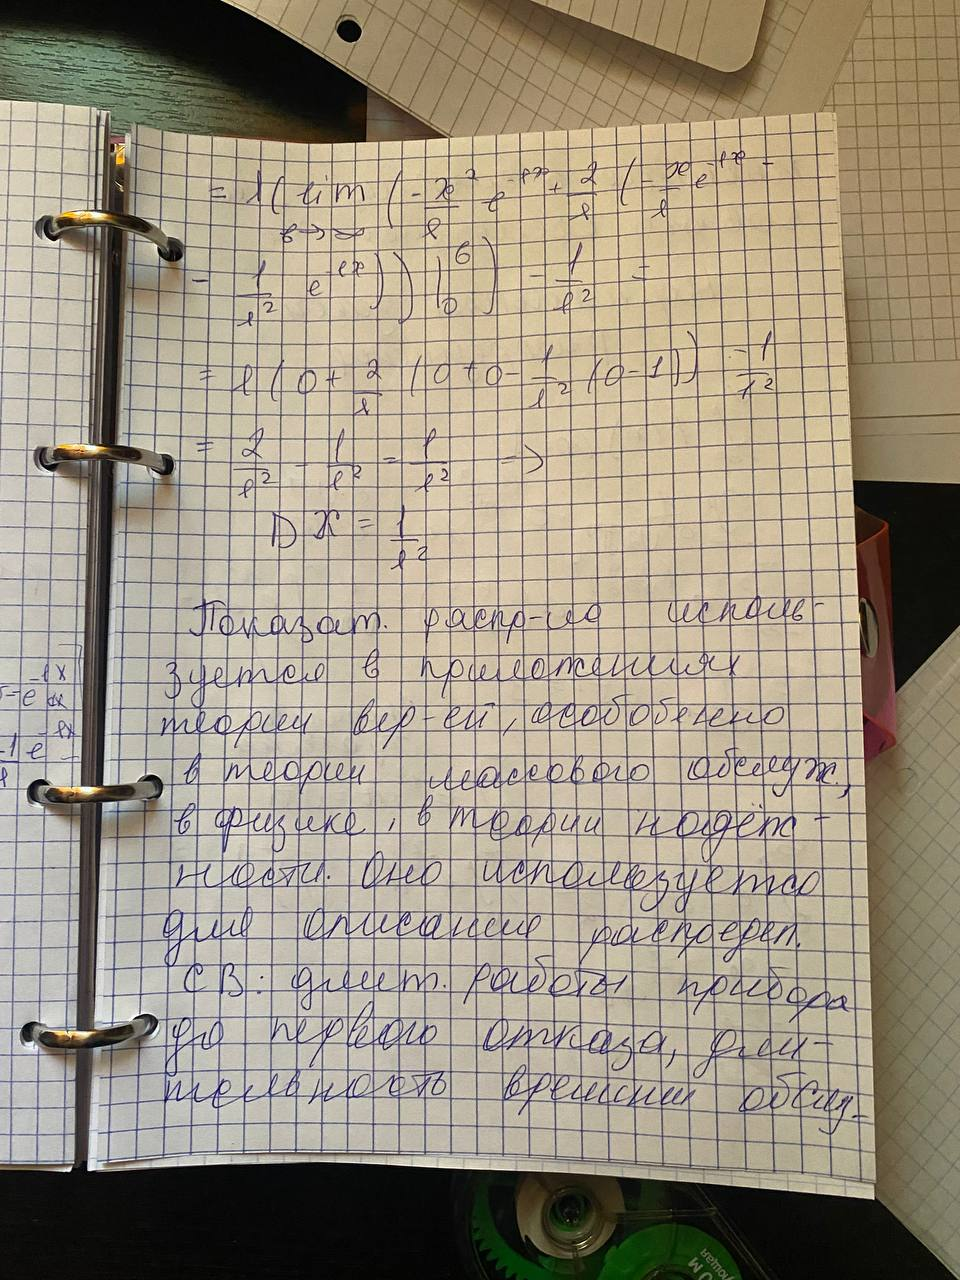 = l( lim (-x²/l e^-lx + 2/l (-x/l e^-lx -
b→∞
- 1/l² e^-lx)) |₀ᵇ) - 1/l² =
= l(0 + 2/l (0+0- 1/l² (0-1)) - 1/l²
= 2/l² - 1/l² = 1/l² →
DX = 1/l²
Показат. распр-ие исполь-
зуется в приложениях
теории вер-ей, особобенно
в теории массового обслуж.,
в физике, в теории надёж-
ности. Оно используется
для описание распредел.
СВ: длит. работы прибора
до первого отказа, дли-
тельность времени обслу-
e^-lx
e^-lx